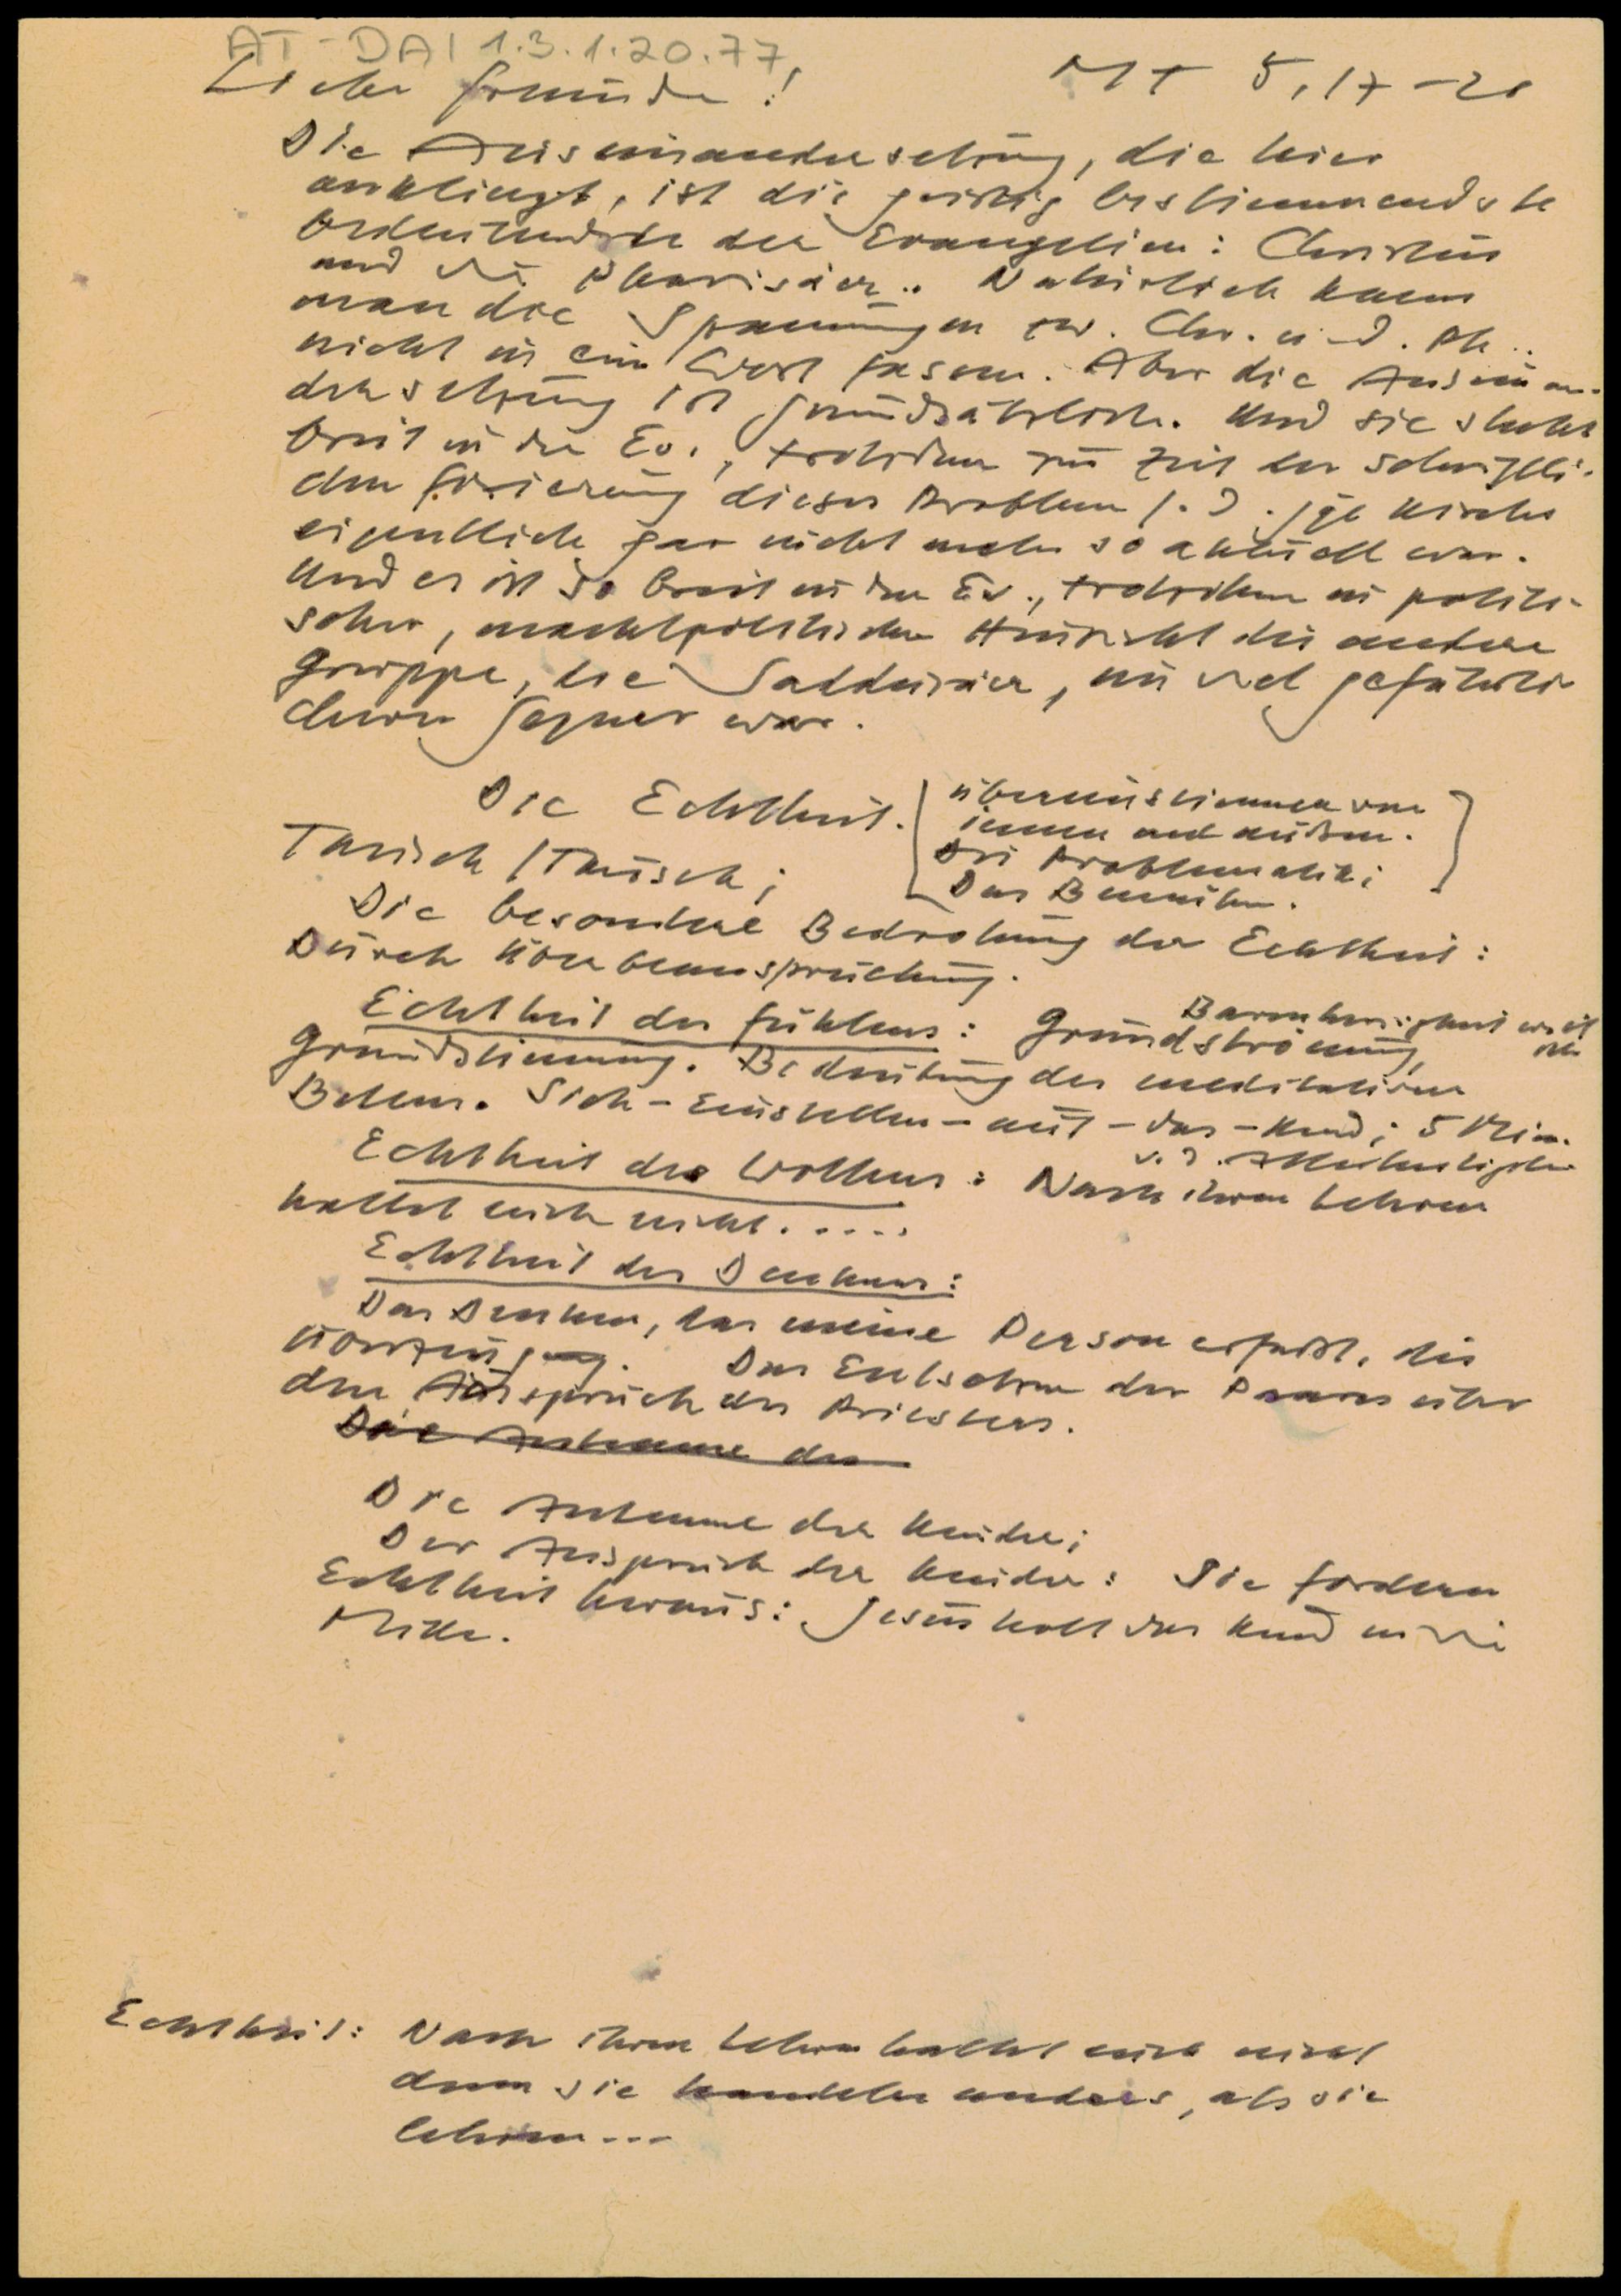 AT-DAI 1.3.1.20.77
Liebe Freunde!
Mt 5,17-20
Die Auseinandersetzung, die hier
anklingt, ist die geistig bestimmendste
bedeutendste der Evangelien: Christus
und die Pharisäer. Natürlich kann
man die Spannungen zw. Chr. u. d. Ph.
nicht in ein Wort fassen. Aber die Ausein an-
dersetzung ist grundsätzlich. Und sie steht
breit in den Ev., trotzdem zur Zeit der schriftli-
chen Fixierung dieses Problem f. d. jge Kirche
eigentlich gar nicht mehr so aktuell war.
Und es ist so breit in den Ev., trotzdem in politi-
scher, machtpolitischer Hinsicht die andere
Gruppe, die Sadduzäer, ein viel gefährli-
cherer Gegner war.
Die Echtheit.
übereinstimmen von
innen und außen.
Die Problematik;
Das Bemühen.
Tausch/Tausch;
Die besondere Bedrohung der Echtheit:
Durch Überbeanspruchung.
Echtheit des Fühlens: Grundströmung,
Barmherzigkeit will ich
Grundstimmung. Bedeutung des meditativen
Betens. Sich-einstellen-auf-das-Kind; 5 Min.
v. d. Allerheiligsten
Echtheit des Wollens: Nach ihren Lehren
haltet euch nicht.....
Echtheit des Denkens:
Das Denken, das meine Person erfaßt, die
Überzeugung. Das Entsetzen des Paares über
den Ausspruch des Priesters.
Die Antenne der
Die Antenne der Kinder;
Der Anspruch der Kinder: Sie fordern
Echtheit heraus: Jesus holt das Kind in die
Mitte.
Echtheit: Nach ihren Lehren haltet euch nicht
denn sie handeln anders, als sie
lehren...